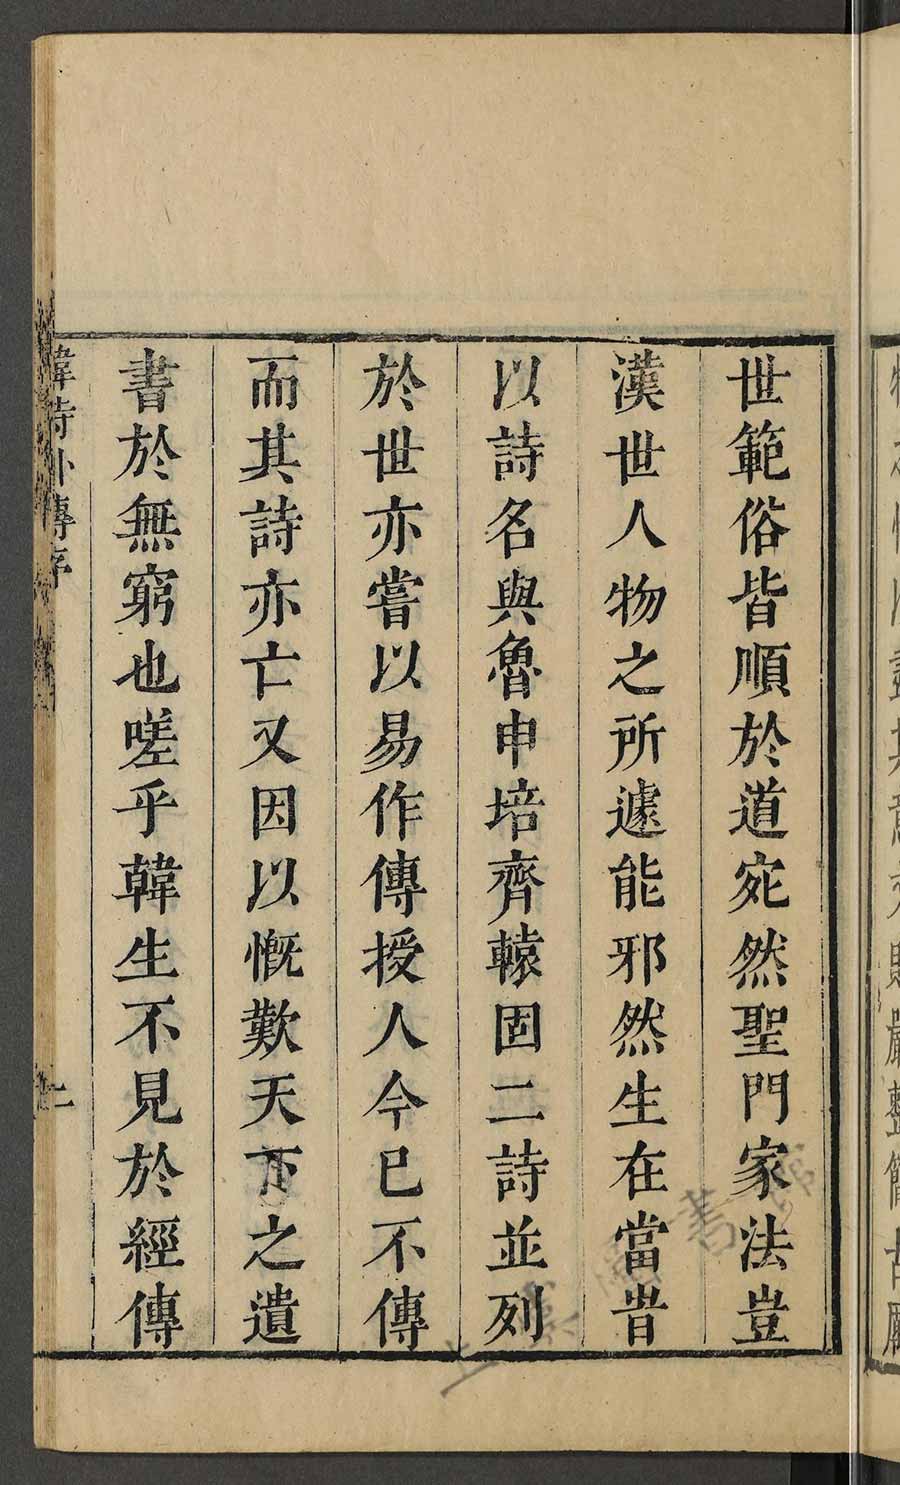 世範俗皆順於道宛然聖門家法豈
漢世人物之所遽能邪然生在當昔
以詩名與魯申培齊轅固二詩並列
於世亦嘗以易作傳授人今已不傳
而其詩亦亡又因以慨歎天下之遺
書於無窮也嗟乎韓生不見於經傳
韓詩外傳序
二